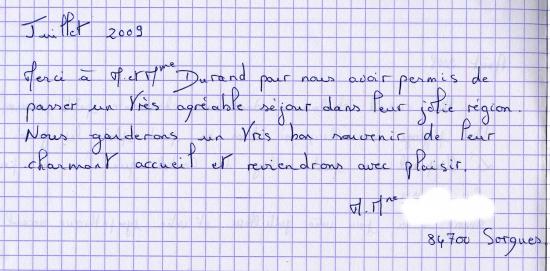 Juillet 2009
Merci à M. et Mme Durand pour nous avoir permis de
passer un très agréable séjour dans leur jolie région.
Nous garderons un très bon souvenir de leur
charmant accueil et reviendrons avec plaisir.
M. Mme
84700 Sorgues.